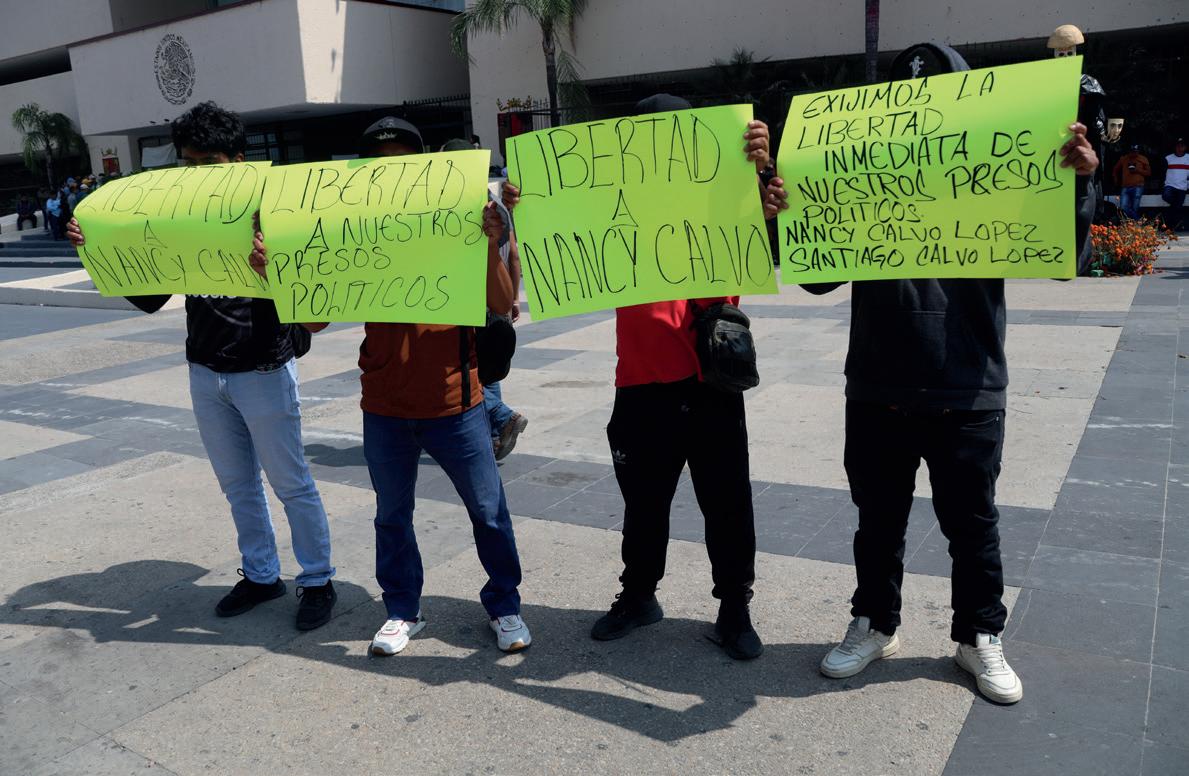 LIBERTAD
A
NANCY CALV
LIBERTAD
A NUESTROS
PRESOS
POLITICOS
LIBERTAD
A
NANCY CALVO
EXIJIMOS LA
LIBERTAD
INMEDIATA DE
NUESTROS PRESOS
POLITICOS.
NANCY CALVO LOPEZ
SANTIAGO CALVO LOPEZ